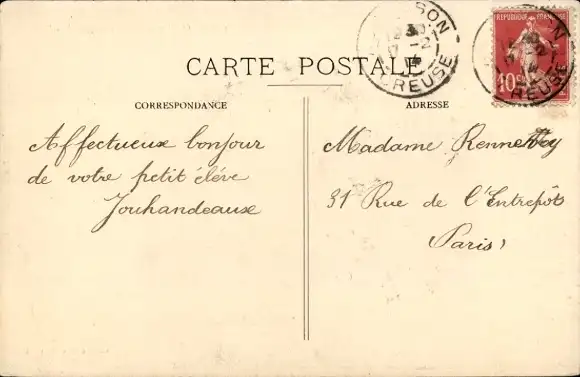 SON
30
7-2
CREUSE
REPUBLIQUE FRANÇAISE
10
REUSE
CARTE POSTALE
CORRESPONDANCE
ADRESSE
Affectueux bonjour
de votre petit élève
Jouhandeause
Madame
31 Rue de l'Entrepôt
(Paris)